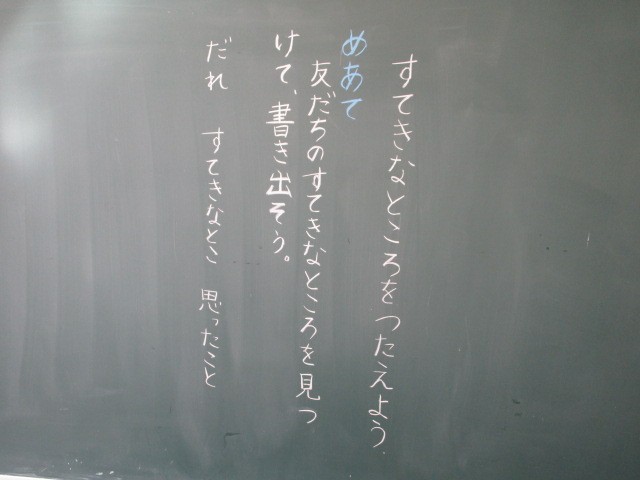 すてきなところをつたえよう
めあて
友だちのすてきなところを見つ
けて、書き出そう。
だれ　すてきなとこ　思ったこと